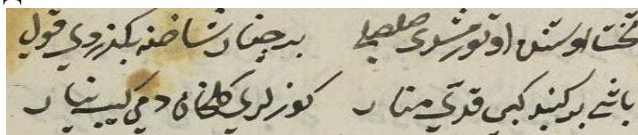 تخت اوستنه اوتورمشدی صلصلی بر چنار شاخنه بکزردی قول
باشی بر کنبد کبی قدی منار کوزلری کلخان دمی کیبی ینار